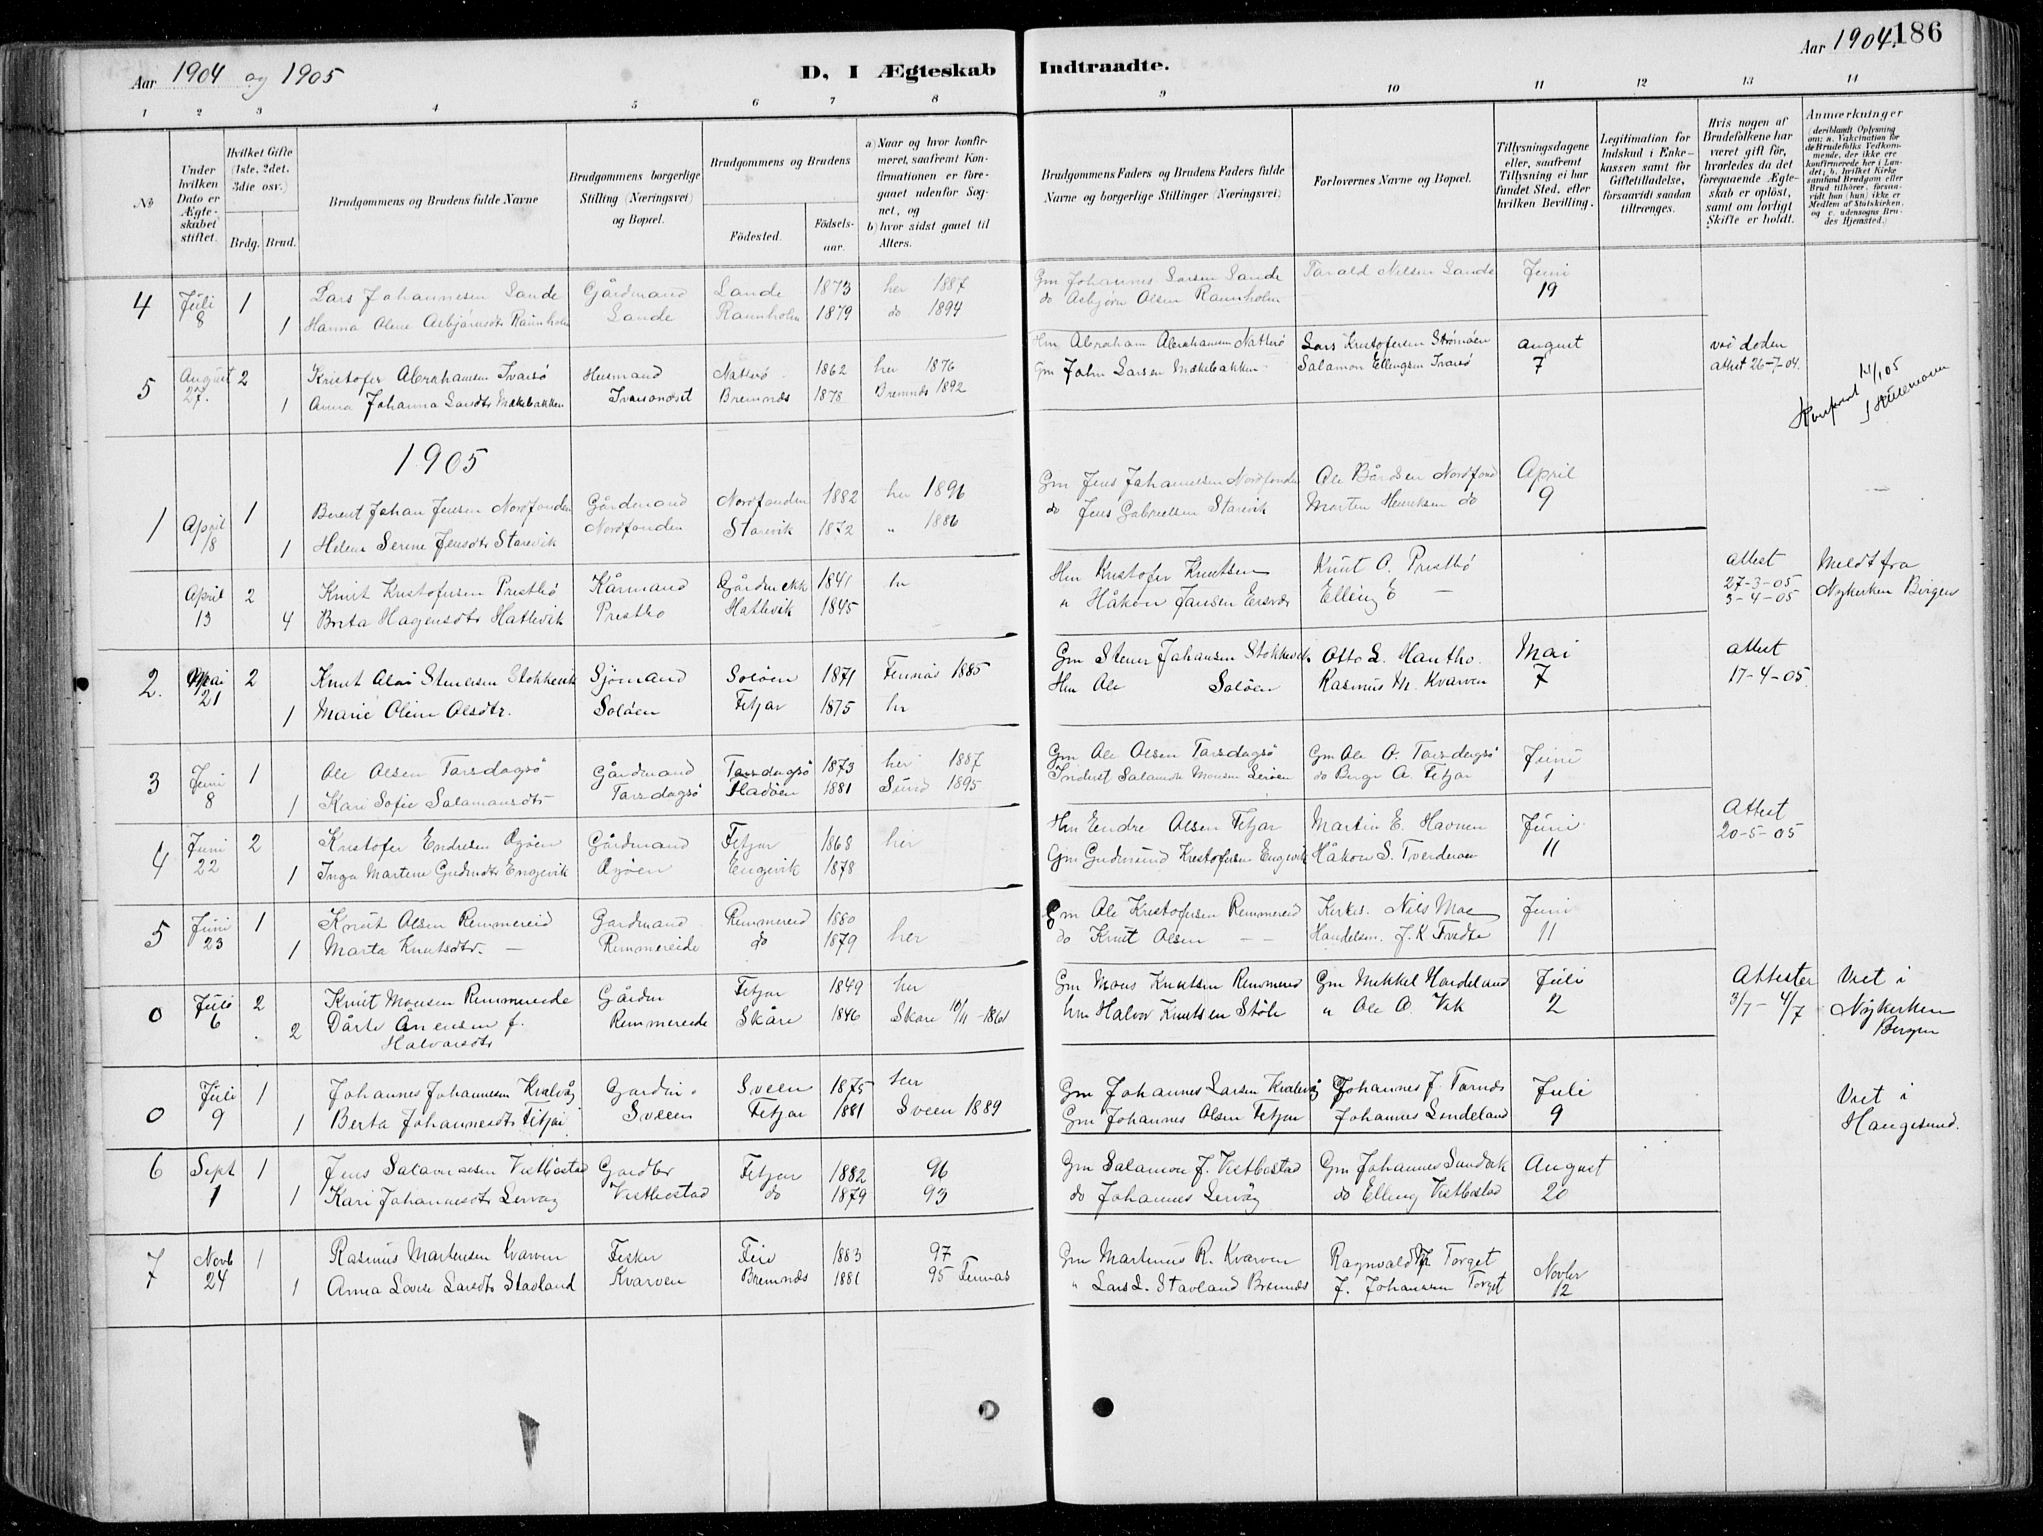 Aar 1904 og 1905
D, I Ægteskab Indtraadte.
Aar 1904. 186
1 2 3 4 5 6 7 8 9 10 11 12 13 14
No
Under hvilken Dato er Ægteskabet stiftet.
Hvilket Gifte (1ste, 2det, 3die osv.)
Brdg. Brud.
Brudgommens og Brudens fulde Navne
Brudgommens borgerlige Stilling (Næringsvei) og Bopæl.
Brudgommens og Brudens
Fødested. Fødselsaar.
a) Naar og hvor konfirmeret, saafremt Konfirmationen er foregaaet udenfor Sognet, og
b) hvor sidst gaaet til Alters.
Brudgommens Faders og Brudens Faders fulde Navne og borgerlige Stillinger (Næringsvei)
Forlovernes Navne og Bopæl.
Tillysningsdagene eller, saafremt Tillysning ei har fundet Sted, efter hvilken Bevilling.
Legitimation for Indskud i Enkekassen samt for Giftetilladelse, forsaavidt saadan tiltrænges.
Hvis nogen af Brudefolkene har været gift før, hvorledes da det foregaaende Ægteskab er opløst, samt om lovligt Skifte er holdt.
Anmærkninger (deriblandt Oplysning om: a. Vakcination for de Brudefolks Vedkommende, der ikke ere konfirmerede her i Landet; b. hvilket Kirkesamfund Brudgom eller Brud tilhører, forsaavidt han (hun) ikke er Medlem af Statskirken, og c. udensogns Brudes Hjemsted.)
4 Juli 1 Lars Johannesen Sande Gårdmand Sande 1873 her 1887 Gm Johannes Larsen Sande Tarald Nilsen Sande Juni
8 1 Hanna Oline Asbjørnsdtr Raunholm Sande Raunholm 1879 do 1894 do Asbjørn Olsen Raunholm 19
5 August 2 Kristofer Abrahamsen Ivarsø Husmand Natterø 1862 her 1876 Hm Abraham Abrahamsen Natterø Lars Kristofersen Strømøen august ved døden
27. 1 Anna Johanna Larsdtr Mækebakken Bremnds 1878 Bremnds 1892 Gm John Larsen Mækebakken Salamon Ellingsen Ivarsø 7 attest 26-7-04.
1905
1 April 1 Berent Johan Jensen Nordfonden Gårdmand Nordfonden 1882 her 1896 Gm Jens Johannesen Nordfonden Ole Bårdsen Nordfond April
18 1 Helene Serine Jensdtr Starevik Nordfonden Starevik 1872 " 1886 do Jens Gabrielsen Starevik Morten Henriksen do 9
April 2 Knut Kristofersen Prestbø Kårmand 1841 Hm Kristofer Knutsen Knut O. Prestbø attest 27-3-05 Meldt fra
13 4 Brita Hagensdtr Hatlevik Prestbø Hatlevik 1845 " Håkon Jansen Elling E — 3-4-05 Nykerken Bergen
2. Mai 2 Knut Stenersen Stokkevik Sjømand Soløen 1871 Finnås 1885 Gm Stener Johansen Stokkevik Otto L. Mai attest
21 1 Marie Oline Olsdtr. Soløen Fitjar 1875 hr Hm Ole Soløen Rasmus M. Kvarven 7 17-4-05
3 Juni 1 Ole Olsen Tarsdagsø Gårdmand Tarsdagsø 1873 her 1887 Gm Ole Olsen Tarsdagsø Gm Ole O. Tarsdagsø Juni
8 1 Kari Sofie Salamonsdtr Tarsdagsø 1881 Sund 1895 Inderst Salamon Monsen do Berge A. Fitjar 1
4 Juni 2 Kristofer Endresen Gårdmand Fitjar 1868 her Hm Endre Olsen Fitjar Martin E. Havnen Juni Attest 20-5-05
22 1 Inga Martine Gudmdtr Engevik Engevik 1878 Gm Gudmund Kristofersen Engevik Håkon S. 11
5 Juni 1 Knut Olsen Remmereid Gardmand Remmereid 1880 Gm Ole Kristofersen Remmereid Kirkes. Nils Moe Juni
23 1 Marta Knutsdtr. — Remmereide do 1879 her do Knut Olsen — — Handelsm. J. K. 11
0 Juli 2 Knut Monsen Remmereide Gårdm Fitjar 1849 her Gm Mons Knutsen Remmereid Gm Mikkel Hardeland Juli Attester Viet i
6 2 Dårte f. Halvorsdtr Remmereide Skåre 1846 Skåre 10/11-1861 hm Halvor Knutsen " Ole O. Vik 2 3/7 - 4/7 Nykerken Bergen
0 Juli 1 Johannes Johannesen Kralvåg Gardm. Sveen 1875 Gm Johannes Larsen Kralvåg Johannes J. Juli Viet i
9 1 Berta Johannesdtr Fitjar Sveen Fitjar 1881 Sveen 1889 Gm Johannes Olsen Fitjar Johannes 9 Haugesund.
6 Sept 1 Jens Salamonsen Vestbøstad Fitjar 1882 96 Gm Salamon J. Vestbøstad Gm Johannes August
1 1 Kari Johannesdtr Lervåg Vestbøstad do 1879 93 do Johannes Lervåg do Elling Vestbøstad 20
7 Novb 1 Rasmus Martinsen Kvarven Fisker 1883 97 Gm Martinus R. Kvarven Ragnvald Torget Novbr
24 1 Anna Lovise Larsdtr Stavland Kvarven Bremnds 1881 95 Finnås " Lars L. Stavland Bremnds J. Johannesen Torget 12